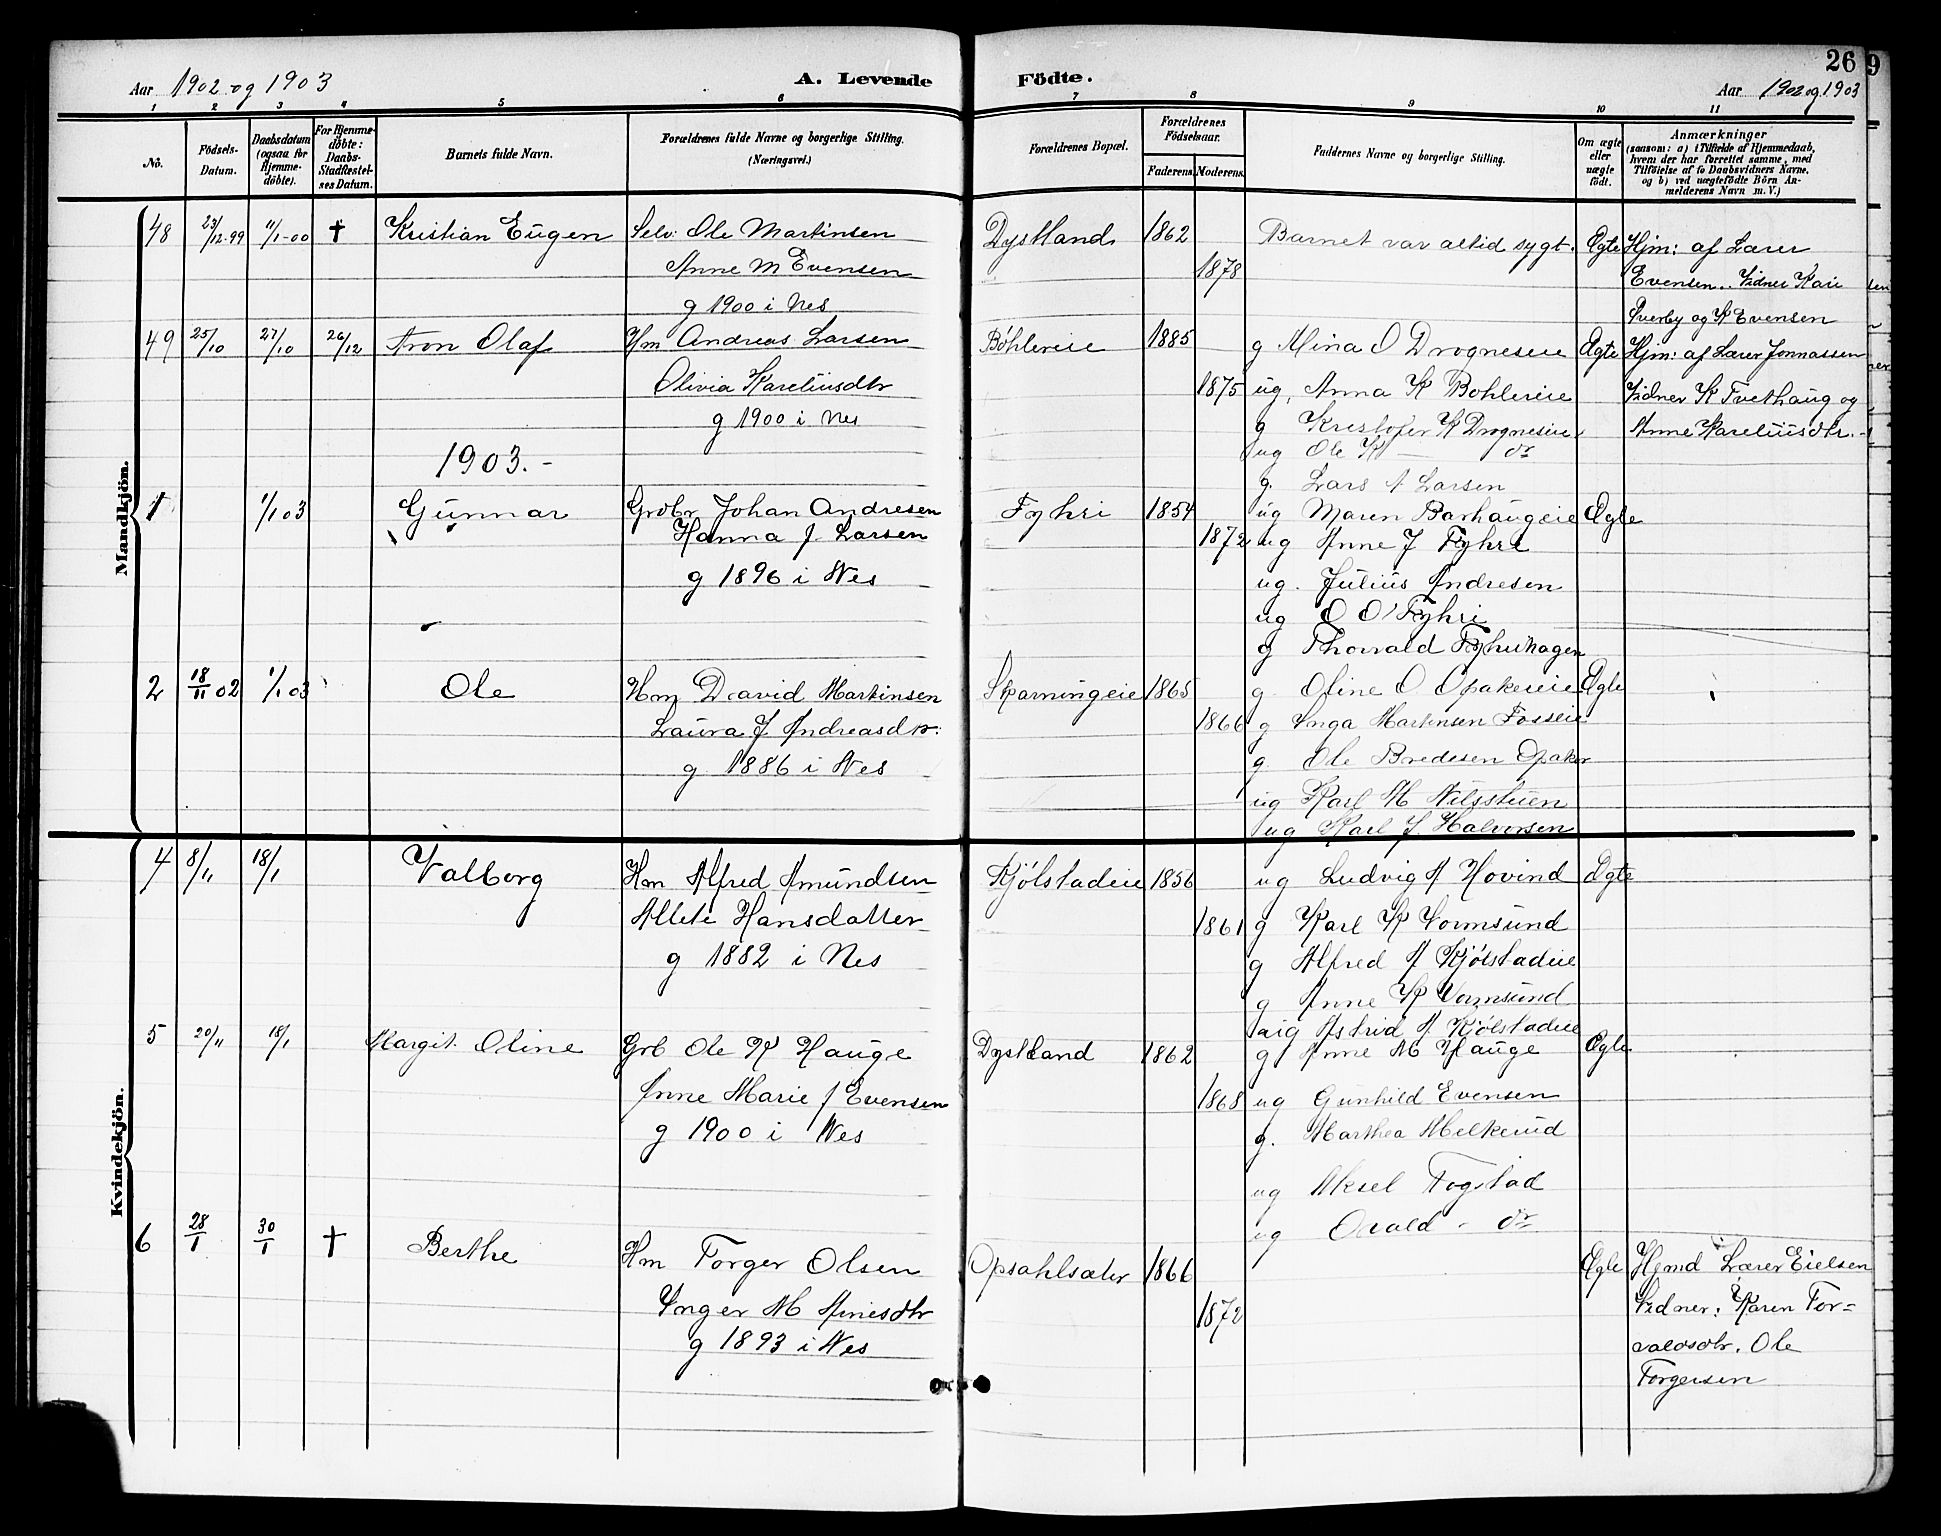 Aar 1902 og 1903
A. Levende Födte.
26
9
Aar 1902 og 1903
1 2 3 4 5 6 7 8 9 10 11
No.
Födsels-Datum.
Daabsdatum (ogsaa for Hjemme-döbte).
For Hjemme-döbte: Daabs-Stadfæstel-ses Datum.
Barnets fulde Navn.
Forældrenes fulde Navne og borgerlige Stilling. (Næringsvei.)
Forældrenes Bopæl.
Forældrenes Födselsaar.
Faderens Moderens
Faddernes Navne og borgerlige Stilling.
Om ægte eller uægte födt.
Anmærkninger
(saasom: a) i Tilfælde af Hjemmedaab,
hvem der har forrettet samme, med
Tilföielse af to Daabsvidners Navne,
og b) ved uægtefödte Börn An-
melderens Navn m. V.)
Mandkjön.
48 23/12-99 11/1-00 † Kristian Eugen Selv: Ole Martinsen Dystland 1862 Barnet var altid sygt. Ægte Hjm: af Lærer
Anne M Evensen 1878 Evensen. Vidner Kari
g 1900 i Nes Sverby og K Evensen
49 25/10 27/10 26/12 Tron Olaf Hm Andreas Larsen Böhlereie 1885 g Mina O Drogneseie Ægte Hjm: af Lærer Jonnassen
Olivia Kareliusdtr 1875 ug. Anna K Bohlereie Vidner K Tvethaug og
g 1900 i Nes g Kristofer K Drogneseie Anne Kareliusdtr. -
ug Ole K — do
1903. -
g. Lars A Larsen
1 1/1 03 Gunnar Grdbr Johan Andresen Fyhri 1854 ug Maren Barhaugeie Ægte
Hanna J Larsen 1872 ug Anne J Fyhri
g 1896 i Nes ug. Julius Andresen
ug O O Fyhri
g Thorvald Fyhrihagen
2 18/11 02 1/1 03 Ole Hm David Martinsen Skarningeie 1865 g. Oline O Opakereie Ægte
Laura J Andreasdtr. 1866 g Inga Martinsen Fosseie
g 1886 i Nes g. Ole Bredesen Opaker
ug Karl M Nilsstuen
ug Karl J. Halvorsen
Kvindekjön.
4 8/11 18/1 Valborg Hm Alfred Amundsen Kjölstadeie 1856 ug Ludvig A Hovind Ægte
Allete Hansdatter 1861 g Karl K Vormsund
g 1882 i Nes g Alfred A Kjölstadeie
g Anne K Vormsund
ug Astrid A. Kjölstadeie
5 20/11 18/1 Margit Oline Grb Ole K Hauge Dystland 1862 g Anne M Hauge Ægte
Anne Marie J Evensen 1868 ug Gunhild Evensen
g 1900 i Nes g. Marthea Melkerud
ug Aksel Fogstad
ug Osvald - do
6 28/1 30/1 † Berthe Hm Torger Olsen Opsahlsæter 1866 Ægte Hjmd Lærer Eielsen
Inger M Arnesdtr 1872 Vidner: Karen Tor=
g 1893 i Nes valdsdtr. Ole
Torgersen